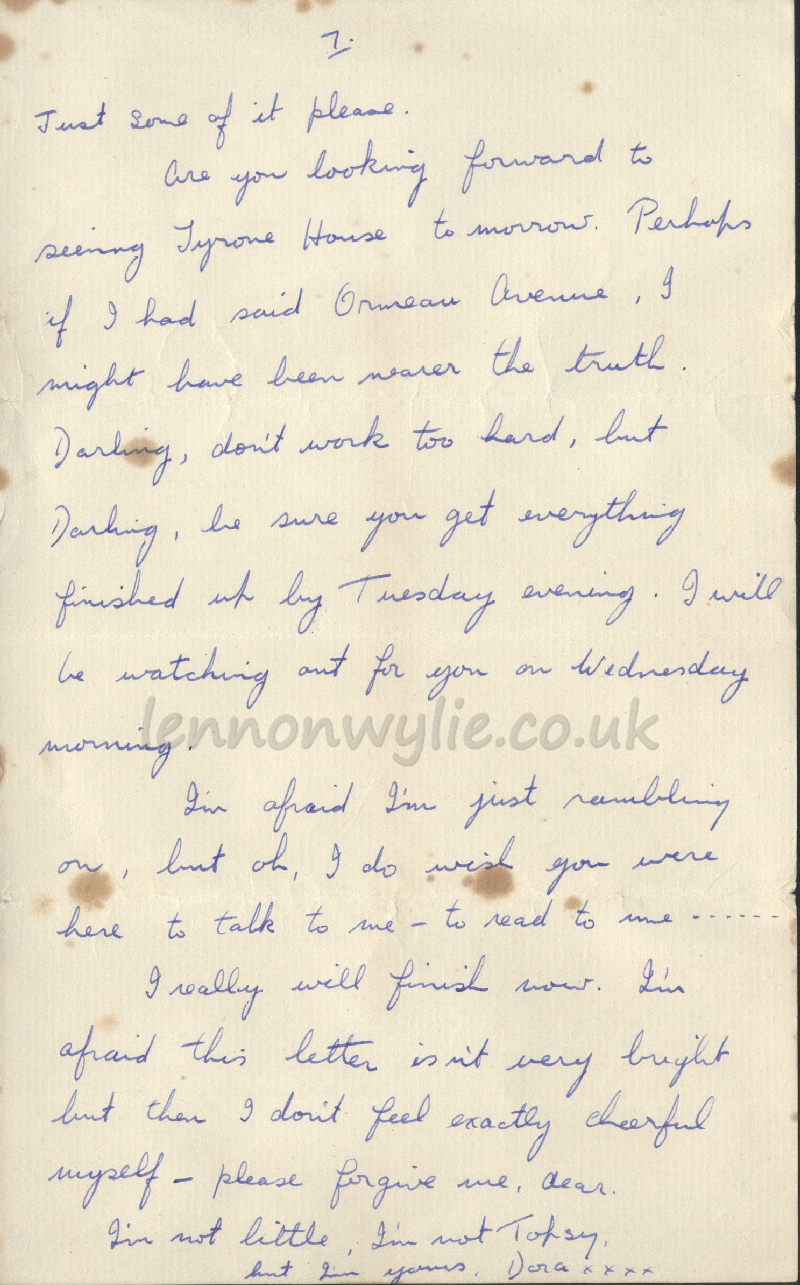 7.
Just some of it please.
Are you looking forward to
seeing Tyrone House to morrow. Perhaps
if I had said Ormeau Avenue, I
might have been nearer the truth.
Darling, don't work too hard, but
Darling, be sure you get everything
finished up by Tuesday evening. I will
be watching out for you on Wednesday
morning.
lennonwylie.co.uk
I'm afraid I'm just rambling
on, but oh, I do wish you were
here to talk to me – to read to me ------
I really will finish now. I'm
afraid this letter isn't very bright
but then I don't feel exactly cheerful
myself – please forgive me, dear.
I'm not little, I'm not Topsy,
but I'm yours. Dora xxxx